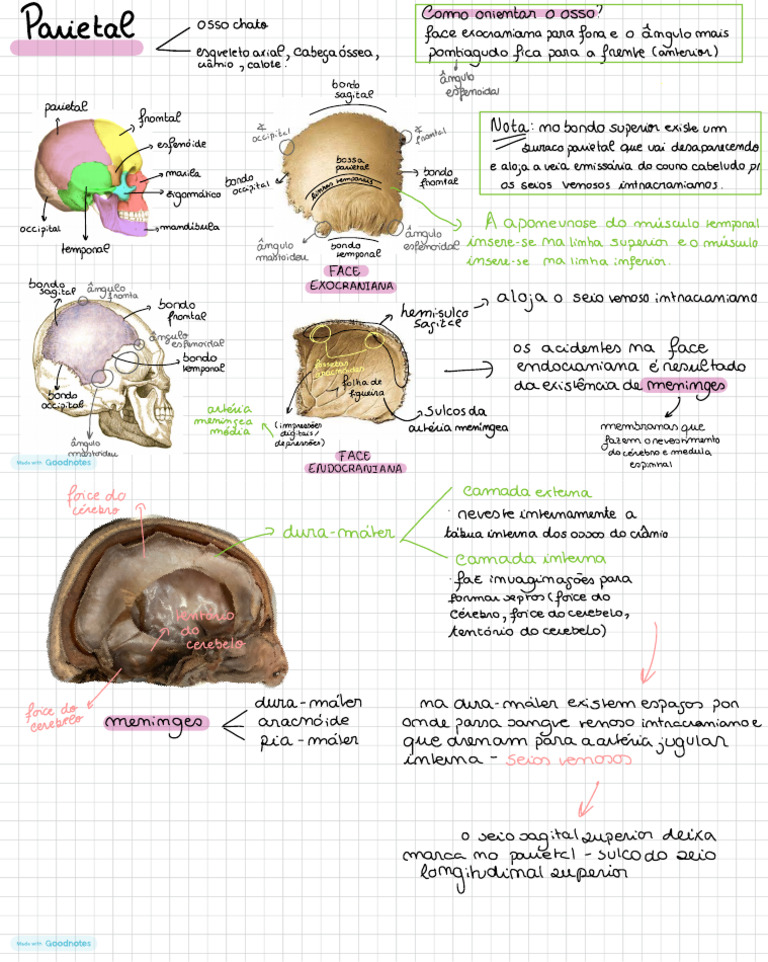 Parietal
osso chato
esqueleto axial, cabeça óssea,
crânio, calote.
Como orientar o osso?
face exocraniana para fora e o ângulo mais
pontiagudo fica para a frente (anterior)
ângulo
esfenoidal
parietal
frontal
esfenóide
maxila
zigomático
mandíbula
occipital
temporal
bordo
sagital
∡ occipital
∡ frontal
bossa
parietal
linhas temporais
bordo
occipital
bordo
frontal
ângulo
mastoideu
bordo
temporal
ângulo
esfenoidal
FACE
EXOCRANIANA
Nota: no bordo superior existe um
buraco parietal que vai desaparecendo
e aloja a veia emissária do couro cabeludo p/
os seios venosos intracranianos.
A aponevrose do músculo temporal
insere-se na linha superior e o músculo
insere-se na linha inferior.
bordo
sagital
ângulo
fronta
bordo
frontal
ângulo
esfenoidal
bordo
temporal
bordo
occipital
ângulo
mastoideu
hemi-sulco
sagital
aloja o seio venoso intracraniano
fossetas
aracnoideas
folha de
figueira
artéria
meningea
média
(impressões
digitais/
depressões)
sulcos da
artéria meningea
FACE
ENDOCRANIANA
os acidentes na face
endocraniana é resultado
da existência de meninges
membranas que
fazem o revestimento
do cérebro e medula
espinhal
Made with Goodnotes
foice do
cérebro
dura-máter
camada externa
· reveste internamente a
tábua interna dos ossos do crânio
camada interna
· faz invaginações para
formar septos (foice do
cérebro, foice do cerebelo,
tentório do cerebelo)
tentório
do
cerebelo
foice do
cerebelo
meninges
dura-máter
aracnóide
pia-máter
na dura-máter existem espaços por
onde passa sangue venoso intracraniano e
que drenam para a artéria jugular
interna - seios venosos
o seio sagital superior deixa
marca no parietal - sulco do seio
longitudinal superior
Made with Goodnotes